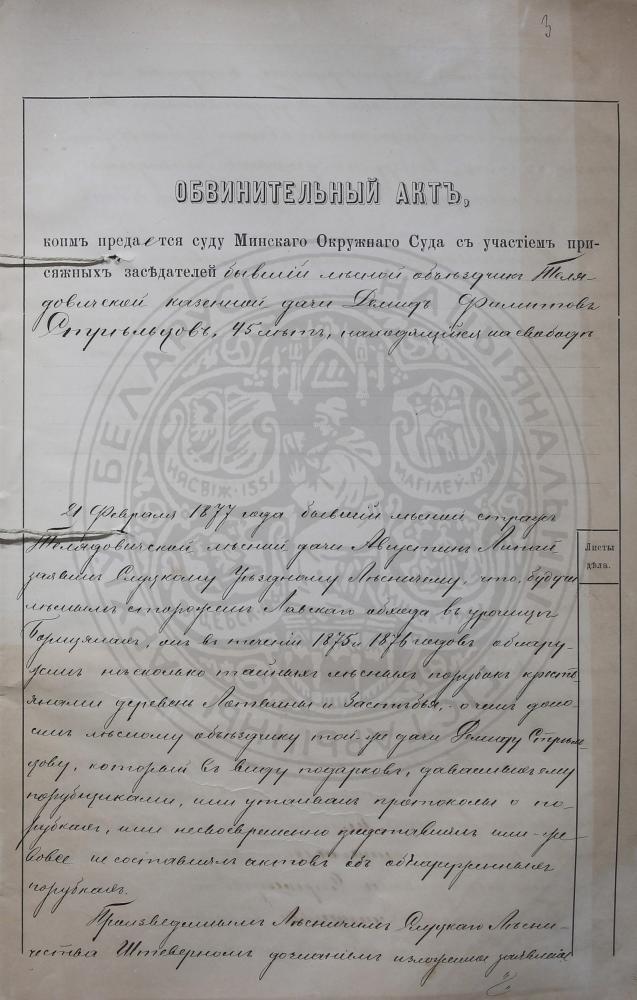 3
ОБВИНИТЕЛЬНЫЙ АКТЪ,
коимъ предается суду Минскаго Окружнаго Суда съ участіемъ при-
сяжныхъ засѣдателей бывшій лѣсной объѣздчикъ Теля-
довичской казенной дачи Демидъ Филиповъ
Стрѣльцовъ, 45 лѣтъ, находящійся на свободѣ
21 Февраля 1877 года бывшій лѣсной стражъ
Телядовичской лѣсной дачи Августинъ Липай
заявилъ Слуцкому Уѣздному Лѣсничему, что, будучи
лѣснымъ сторожемъ Лавскаго обхода въ урочищѣ
онъ въ теченіи 1875 и 1876 годовъ обнару-
жилъ нѣсколько тайныхъ лѣсныхъ порубокъ кресть-
янами деревень Лотвины и Застѣбья, о чемъ доно-
силъ лѣсному объѣздчику той-же дачи Демиду Стрѣль-
цову, который въ виду подарковъ, дававшихся ему
порубщиками, или утаивалъ протоколы о по-
рубкахъ, или несвоевременно представлялъ или-же
вовсе не составлялъ актовъ объ обнаруженныхъ
порубкахъ.
Произведеннымъ Лѣсничимъ Слуцкаго Лѣсни-
чества дознаніемъ изложенное заявленіе
Листы
дѣла.
БЕЛАРУСІ
НЯСВІЖ·1551
МАГІЛЁЎ